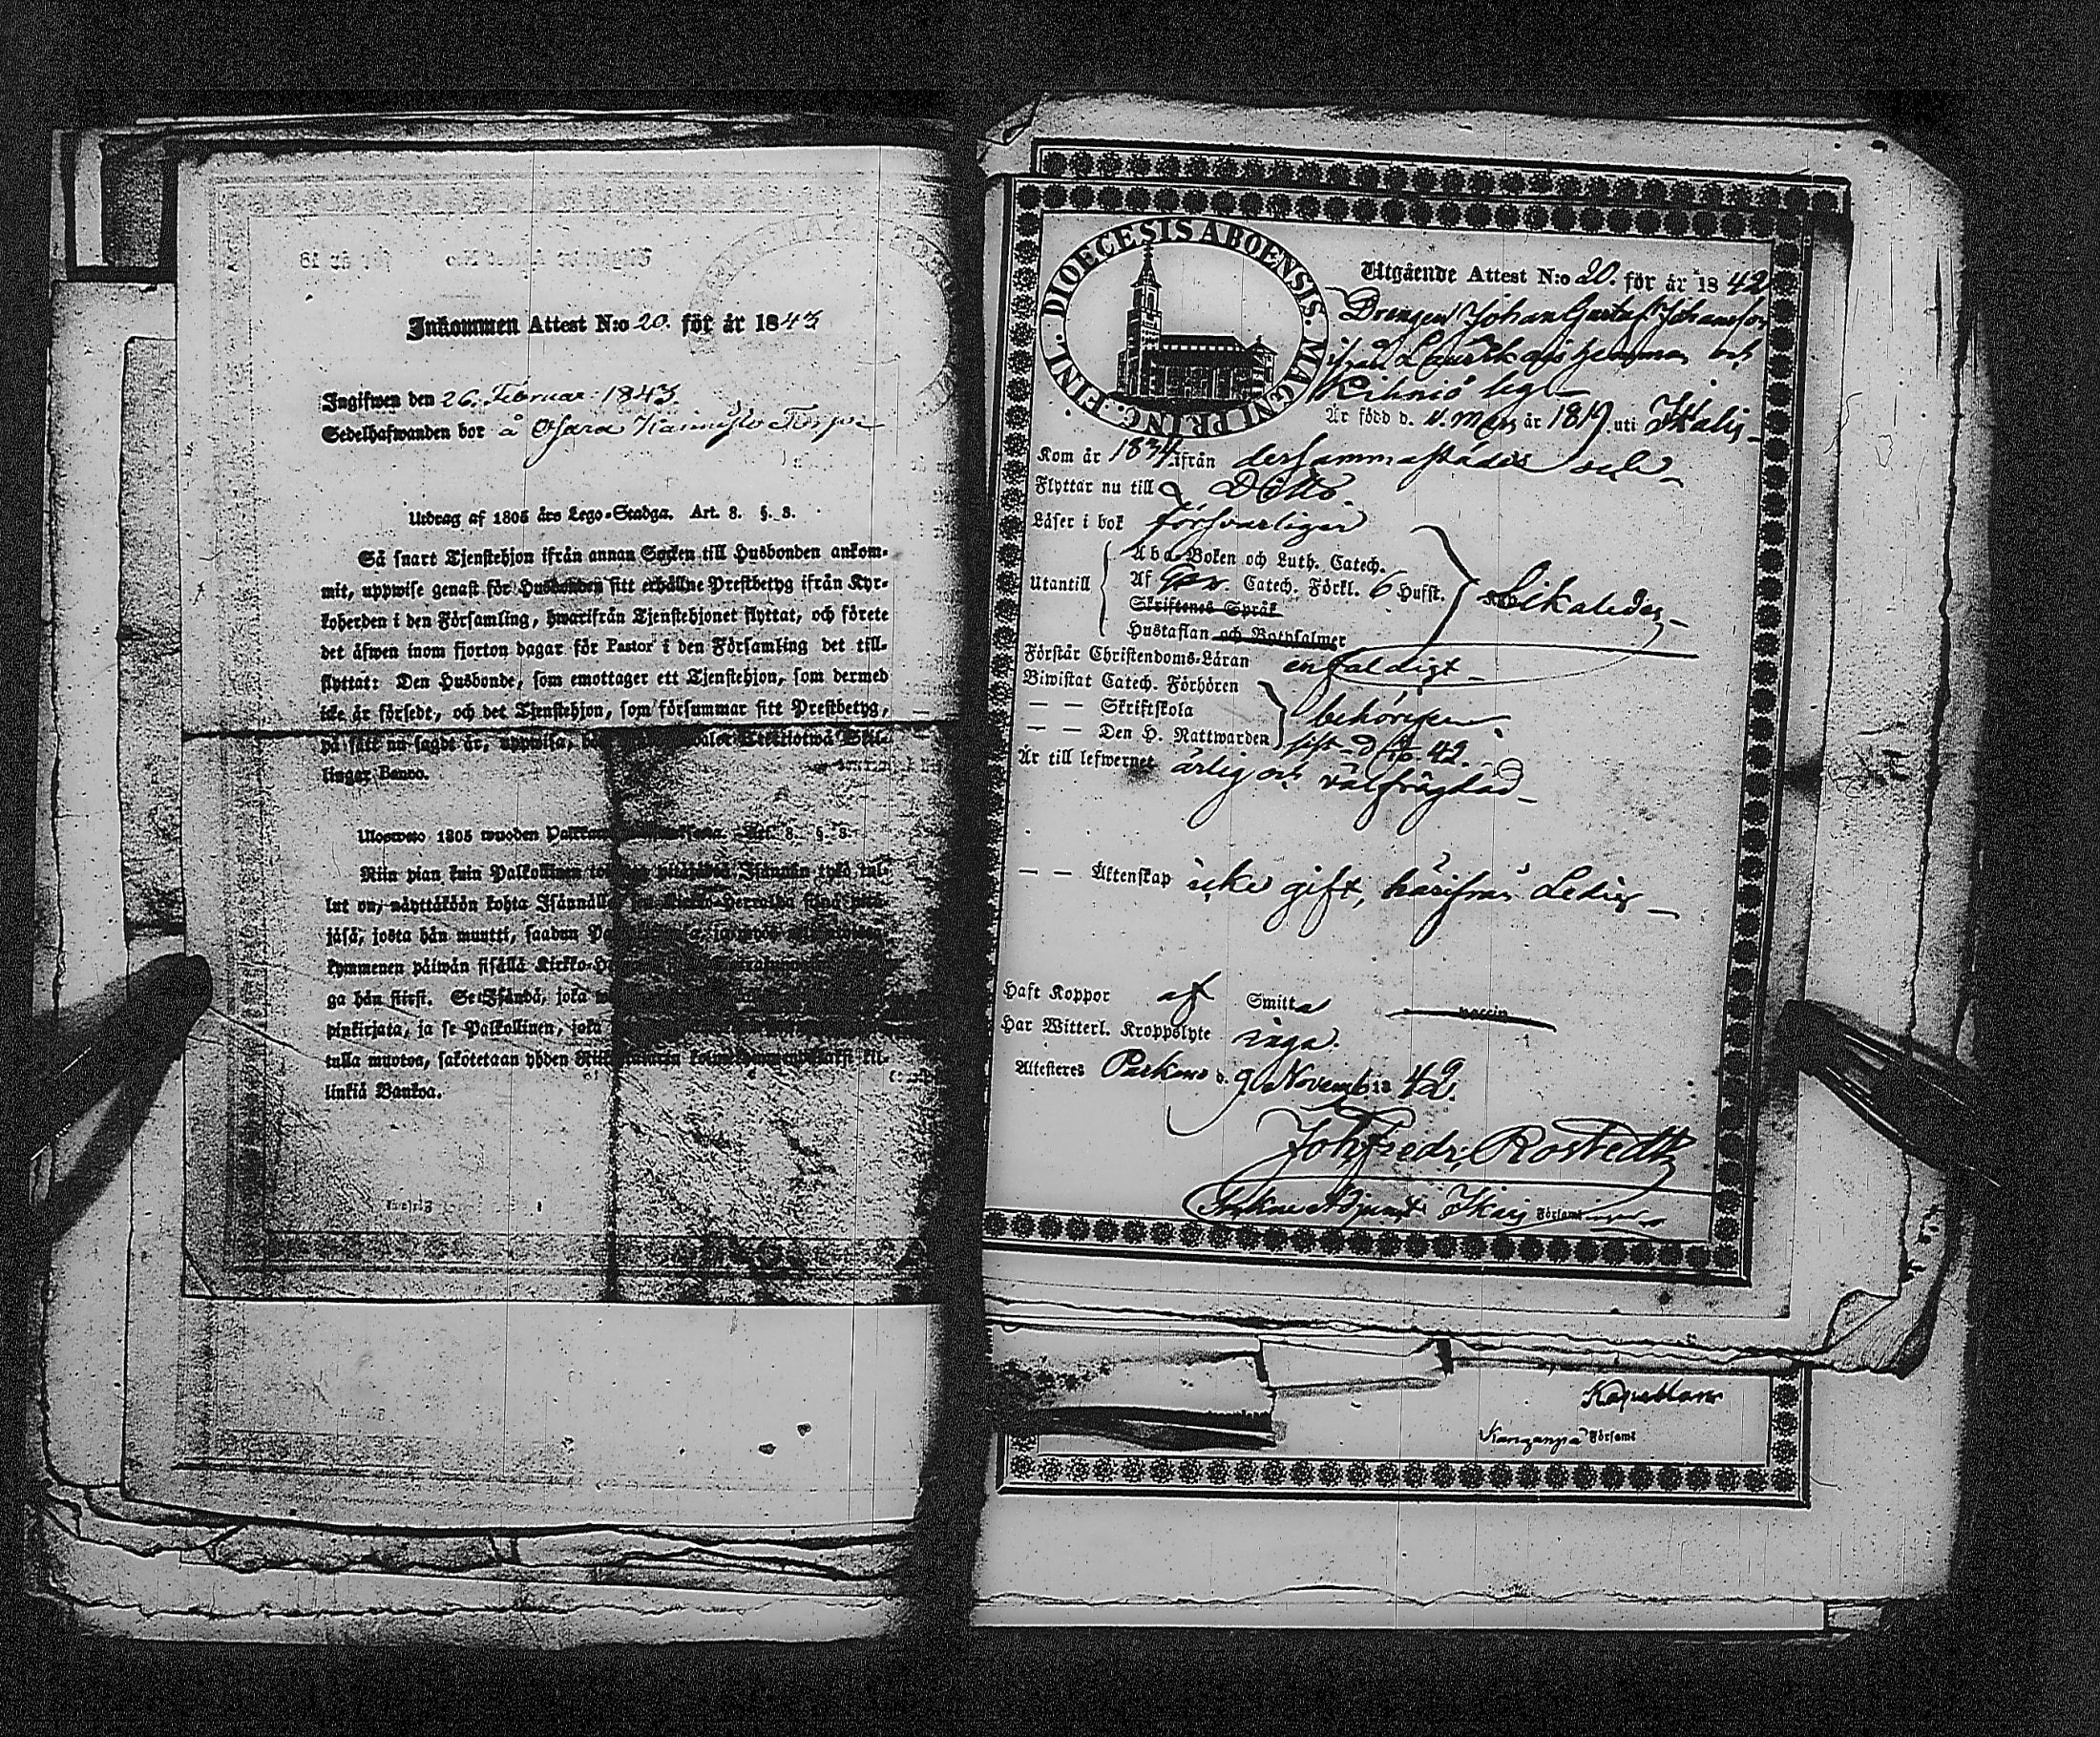 Inkommen Attest N:o 20. för år 1843
Ingifwen den 26. Februar 1843
Sedelhafwanden bor å Osara
Utdrag af 1805 års Lego-Stadga. Art. 8. §. 8.
Så snart Tjenstehjon ifrån annan Socken till Husbonden ankom-
mit, uppwise genast för Husbonden sitt erhållne Prestbetyg ifrån Kyr-
koherden i den Församling, hwarifrån Tjenstehjonet flyttat, och förete
det äfwen inom fjorton dagar för Pastor i den Församling det till-
flyttat: Den Husbonde, som emottager ett Tjenstehjon, som dermed
icke är försedt, och det Tjenstehjon, som försummar sitt Prestbetyg,
på sätt nu sagdt är, uppwisa,
lingar Banco.
Ulosweto 1805 wuoden
Niin pian kuin Palkollinen
lut on, näyttäköön kohta Isännälle
jäsä, josta hän muutti, saadun
kymmenen päiwän sisällä Kirkko-
ga hän siirsi. Se Isändä, joka
pinkirjata, ja se Palkollinen, joka
tulla muotoa, sakotetaan yhden
linkiä Bankoa.
DIOECESIS ABOENSIS. MAGNI PRINC. FINL.
Utgående Attest N:o 20. för år 1842
Drengen Johan Gustaf Johansson
ifrån hemman och
Kihniö
Är född d. 4. Mars år 1819. uti Ikalis
Kom år 1834 ifrån dersammastädes och
Flyttar nu till Ditto.
Läser i bok försvarligen
Utantill
Aba-Boken och Luth. Catech.
Af Catech. Förkl. 6 Hufst.
Likaledes
Skriftenes Språk
Hustaflan och Botpsalmer
Förstår Christendoms-Läran enfaldigt
Biwistat Catech. Förhören
— — Skriftskola
behörigen
— — Den H. Nattwarden sist d. 42.
Är till lefwernet ärlig och välfrägdad
— — Äktenskap icke gift, härifrån Ledig
Haft Koppor af Smitta vaccin
Har Witterl. Kroppslyte inga.
Attesteres Parkano d. 9 Novemb. 18 42.
Joh. Fredr. Rostedt
Ikalis Församl
Kapellan
Kanganpä Församl